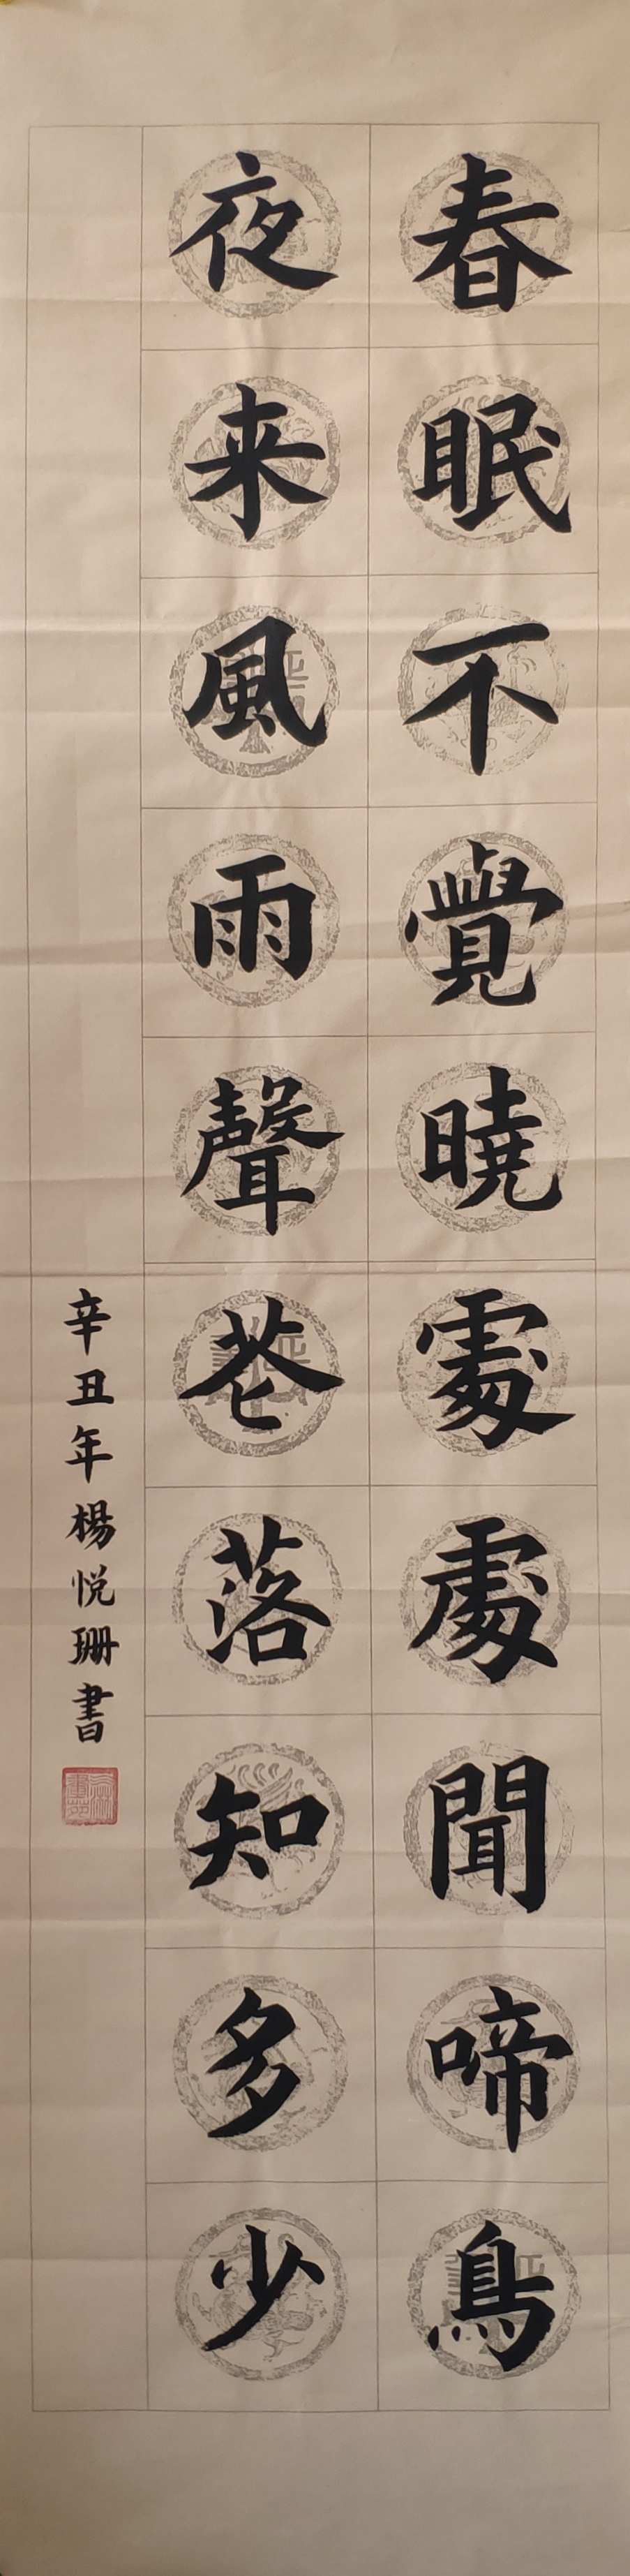 春眠不覺曉處處聞啼鳥
夜来風雨聲花落知多少
辛丑年楊悦珊書